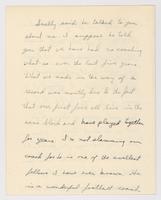 Snelly said he talked to you
about me. I suppose he told
you that we have had no coaching
what so ever the last five years.
What we made in the way of a
record was mostly due to the fact
that our first five all live in the
same block and have played together
for years. I'm not slamming our
coach for he is one of the swellest
fellows I have ever known. He
is a wonderful football coach,